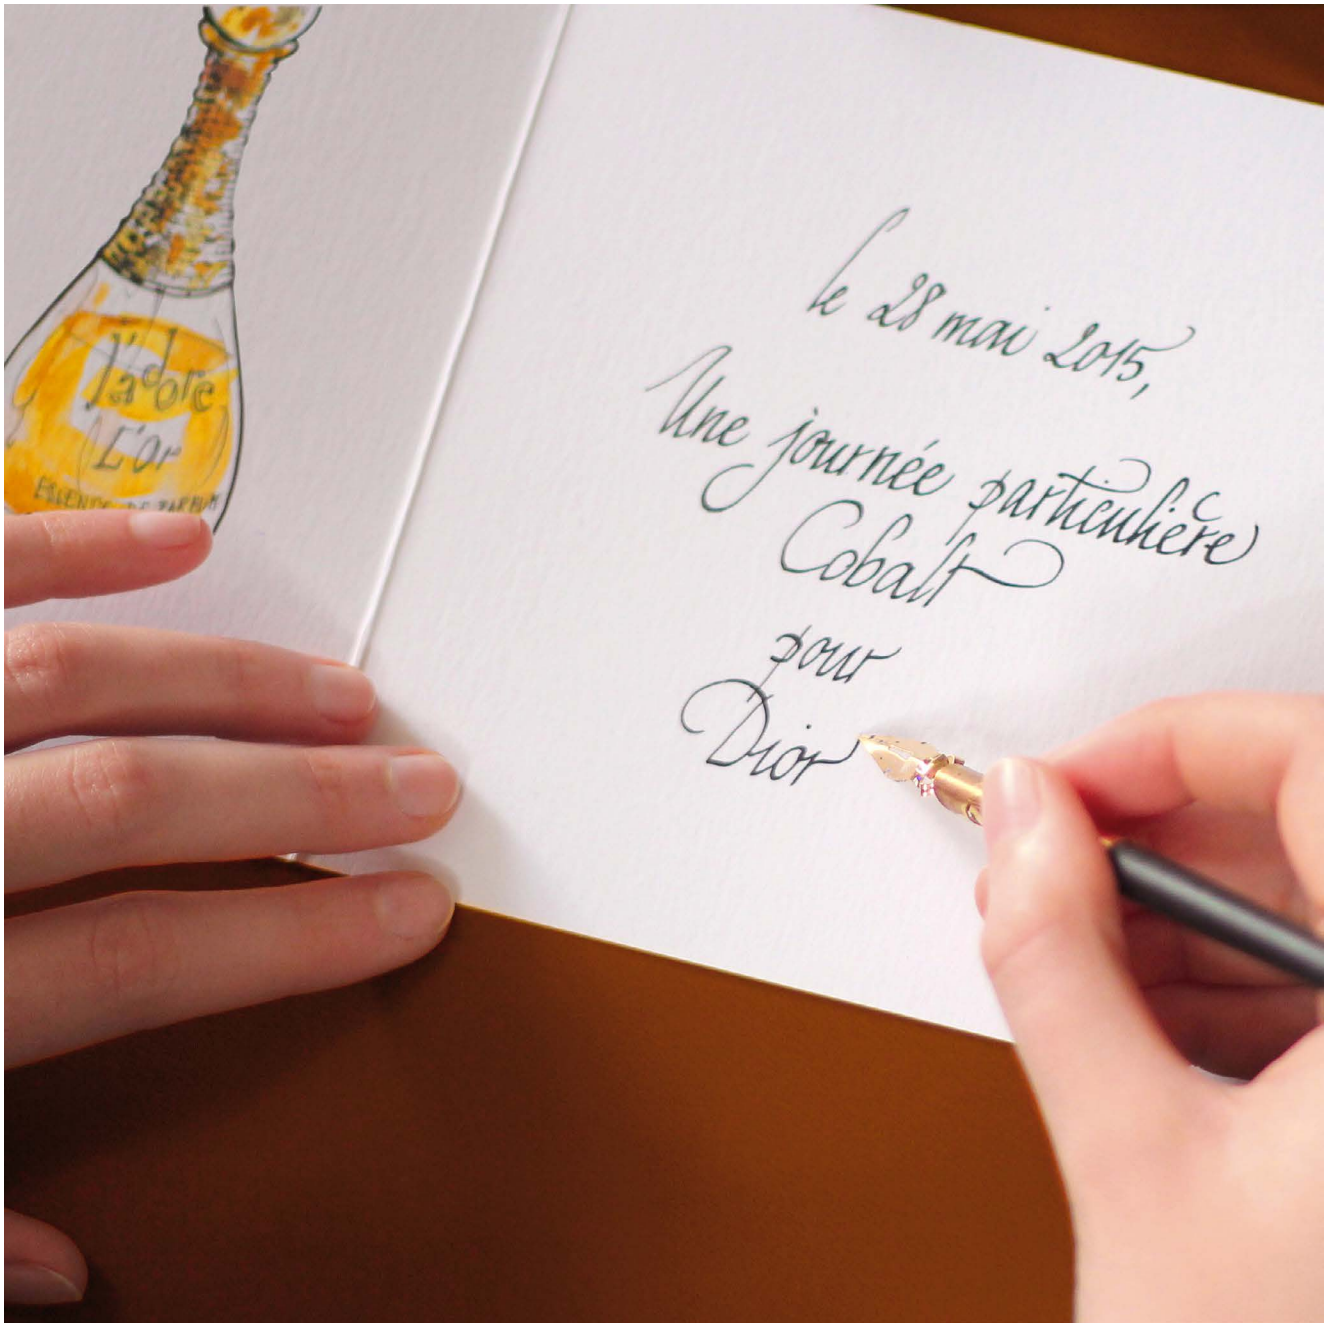 J'adore
L'Or
ESSENCE DE PARFUM
le 28 mai 2015,
Une journée particulière
Cobalt
pour
Dior